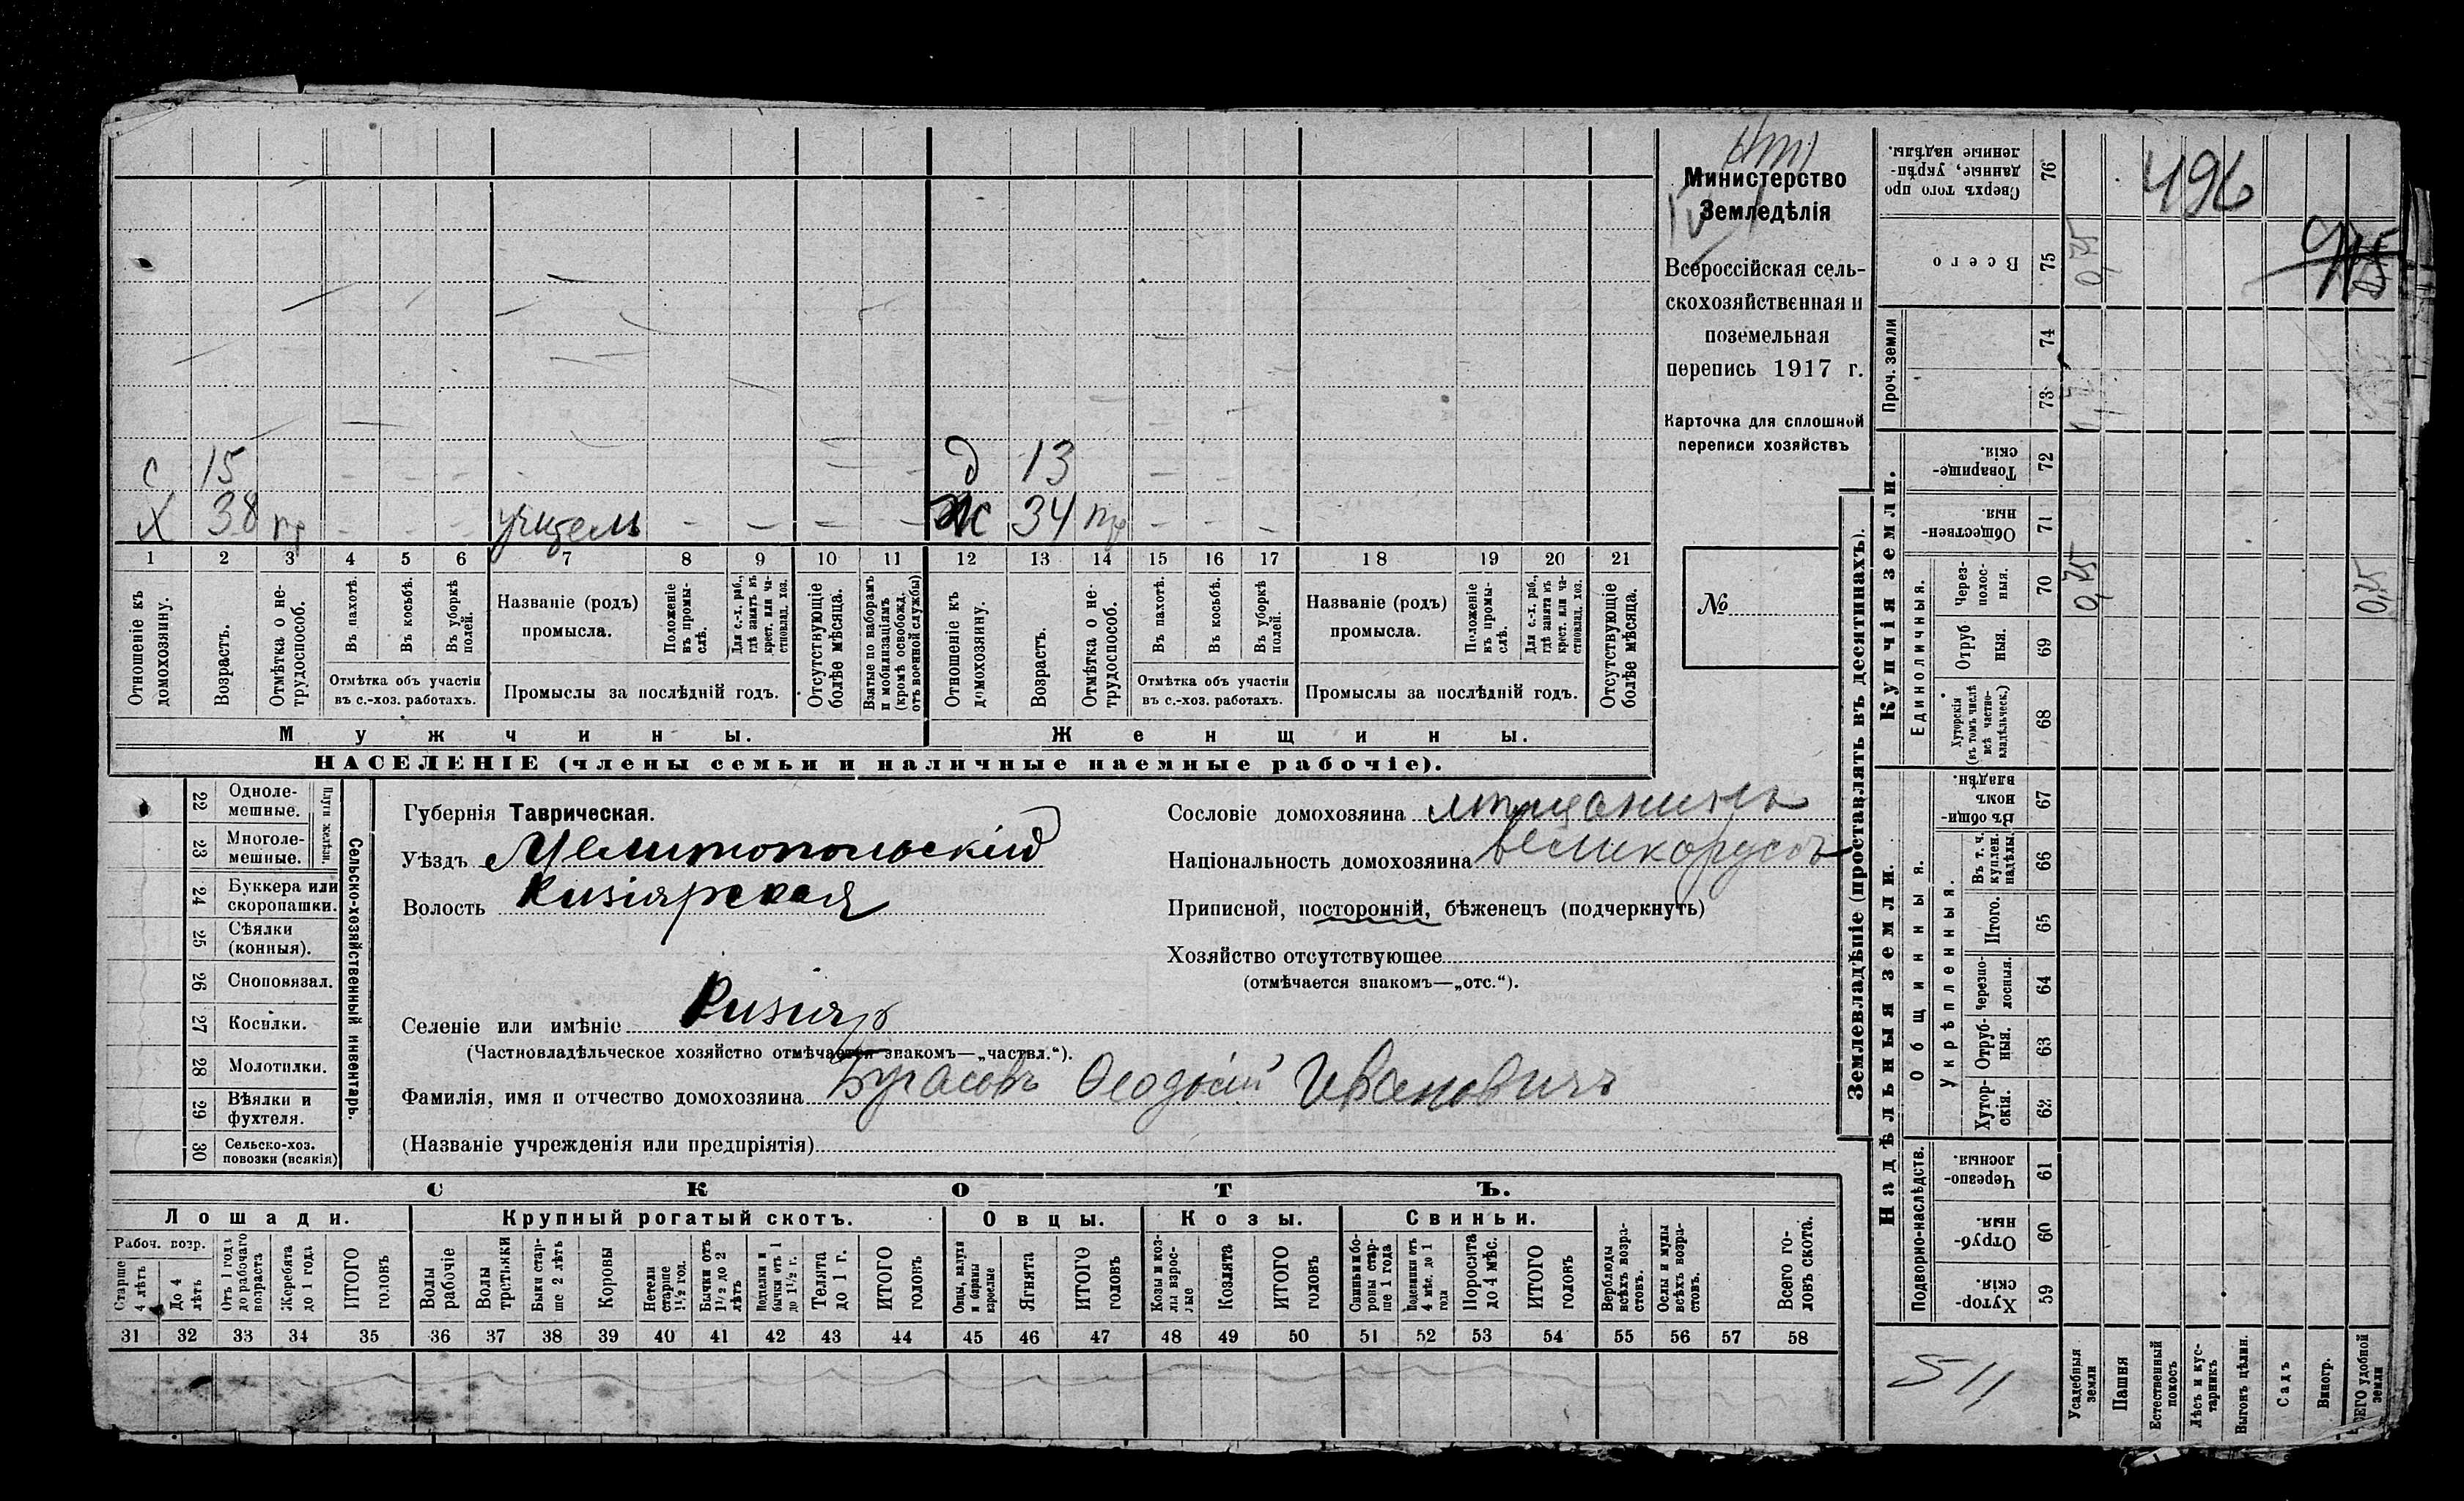 Министерство
Земледѣлія
Всероссійская сель-
скохозяйственная и
поземельная
перепись 1917 г.
Карточка для сплошной
переписи хозяйствъ
№
с 15 д 13
Х 38 пр учитель Ж 34 пр
1 2 3 4 5 6 7 8 9 10 11 12 13 14 15 16 17 18 19 20 21
Отношеніе къ домохозяину.
Возрастъ.
Отмѣтка о не-трудоспособ.
Въ пахотѣ.
Въ косьбѣ.
Въ уборкѣ полей.
Отмѣтка объ участіи
въ с.-хоз. работахъ.
Названіе (родъ)
промысла.
Положеніе въ промы-слѣ.
Для с.-х. раб., гдѣ занятъ въ крест. или ча-стновлад. хоз.
Промыслы за послѣдній годъ.
Отсутствующіе болѣе мѣсяца.
Взятые по наборамъ и мобилизаціямъ (кромѣ освобожд. отъ военной службы)
Отношеніе къ домохозяину.
Возрастъ.
Отмѣтка о не-трудоспособ.
Въ пахотѣ.
Въ косьбѣ.
Въ уборкѣ полей.
Отмѣтка объ участіи
въ с.-хоз. работахъ.
Названіе (родъ)
промысла.
Положеніе въ промы-слѣ.
Для с.-х. раб., гдѣ занята въ крест. или ча-стновлад. хоз.
Промыслы за послѣдній годъ.
Отсутствующіе болѣе мѣсяца.
Мужчины. Женщины.
НАСЕЛЕНІЕ (члены семьи и наличные наемные рабочіе).
Сельско-хозяйственный инвентарь.
Плуги желѣзн.
22 Одноле-мешные.
23 Многоле-мешные.
24 Буккера или скоропашки.
25 Сѣялки (конныя).
26 Сноповязал.
27 Косилки.
28 Молотилки.
29 Вѣялки и фухтеля.
30 Сельско-хоз. повозки (всякія)
Губернія Таврическая.
Уѣздъ Мелитопольскій
Волость Кизіярская
Сословіе домохозяина мѣщанинъ
Національность домохозяина великорусъ
Приписной, посторонній, бѣженецъ (подчеркнуть)
Хозяйство отсутствующее
(отмѣчается знакомъ—„отс.“).
Селеніе или имѣніе Кизіяр
(Частновладѣльческое хозяйство отмѣчается знакомъ—„частвл.“).
Фамилія, имя и отчество домохозяина Бугасовъ Ѳеодосій Ивановичъ
(Названіе учрежденія или предпріятія)
СКОТЪ.
Лошади. Крупный рогатый скотъ. Овцы. Козы. Свиньи.
Рабоч. возр.
Старше 4 лѣтъ
До 4 лѣтъ
Отъ 1 года до рабочаго возраста
Жеребята до 1 года
ИТОГО головъ
Волы рабочіе
Волы третьяки
Быки стар-ше 2 лѣтъ
Коровы
Нетели старше 1½ год.
Бычки отъ 1½ до 2 лѣтъ
Подтелки и бычки отъ 1 до 1½ г.
Телята до 1 г.
ИТОГО головъ
Овцы, валухи и бараны взрослые
Ягнята
ИТОГО головъ
Козы и коз-лы взрос-лые
Козлята
ИТОГО головъ
Свиньи и бо-ровы стар-ше 1 года
Подсвинки отъ 4 мѣс. до 1 года
Поросята до 4 мѣс.
ИТОГО головъ
Верблюды всѣхъ возра-стовъ.
Ослы и мулы всѣхъ возра-стовъ.
Всего го-ловъ скота.
31 32 33 34 35 36 37 38 39 40 41 42 43 44 45 46 47 48 49 50 51 52 53 54 55 56 57 58
Землевладѣніе (проставлять въ десятинахъ).
Купчія земли.
Надѣльныя земли.
Сверхъ того про данные, укрѣп-ленные надѣлы. 76
496
Всего 75 0,25
Проч. земли
74
73
Товарище-скія. 72
Обществен-ныя. 71
Единоличныя.
Через-полос-ныя. 70 0,25 0,25
Отруб ныя. 69
Хуторскія (въ томъ числѣ всѣ частно-владѣльческ.) 68
Общинныя.
Въ общи-номъ владѣн. 67
Укрѣпленныя.
Въ т. ч. куплен. надѣлы. 66
Итого. 65
Черезпо-лосныя. 64
Отруб-ныя. 63
Хутор-скія. 62
Подворно-наслѣдств.
Черезпо-лосныя. 61
Отруб-ныя. 60
Хутор-скія. 59
511
Усадебныя земли
Пашня
Естественный покосъ
Лѣсъ и кус-тарникъ
Выгонъ цѣлин.
Садъ
Виногр.
ВСЕГО удобной земли